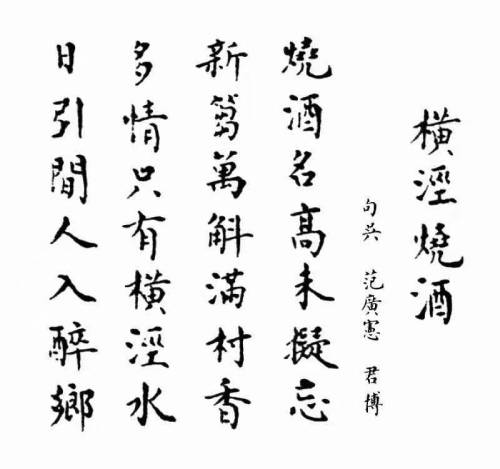 橫涇燒酒
句吳 范廣憲 君博
燒酒名高未擬忘
新篘萬斛滿村香
多情只有橫涇水
日引閒人入醉鄉